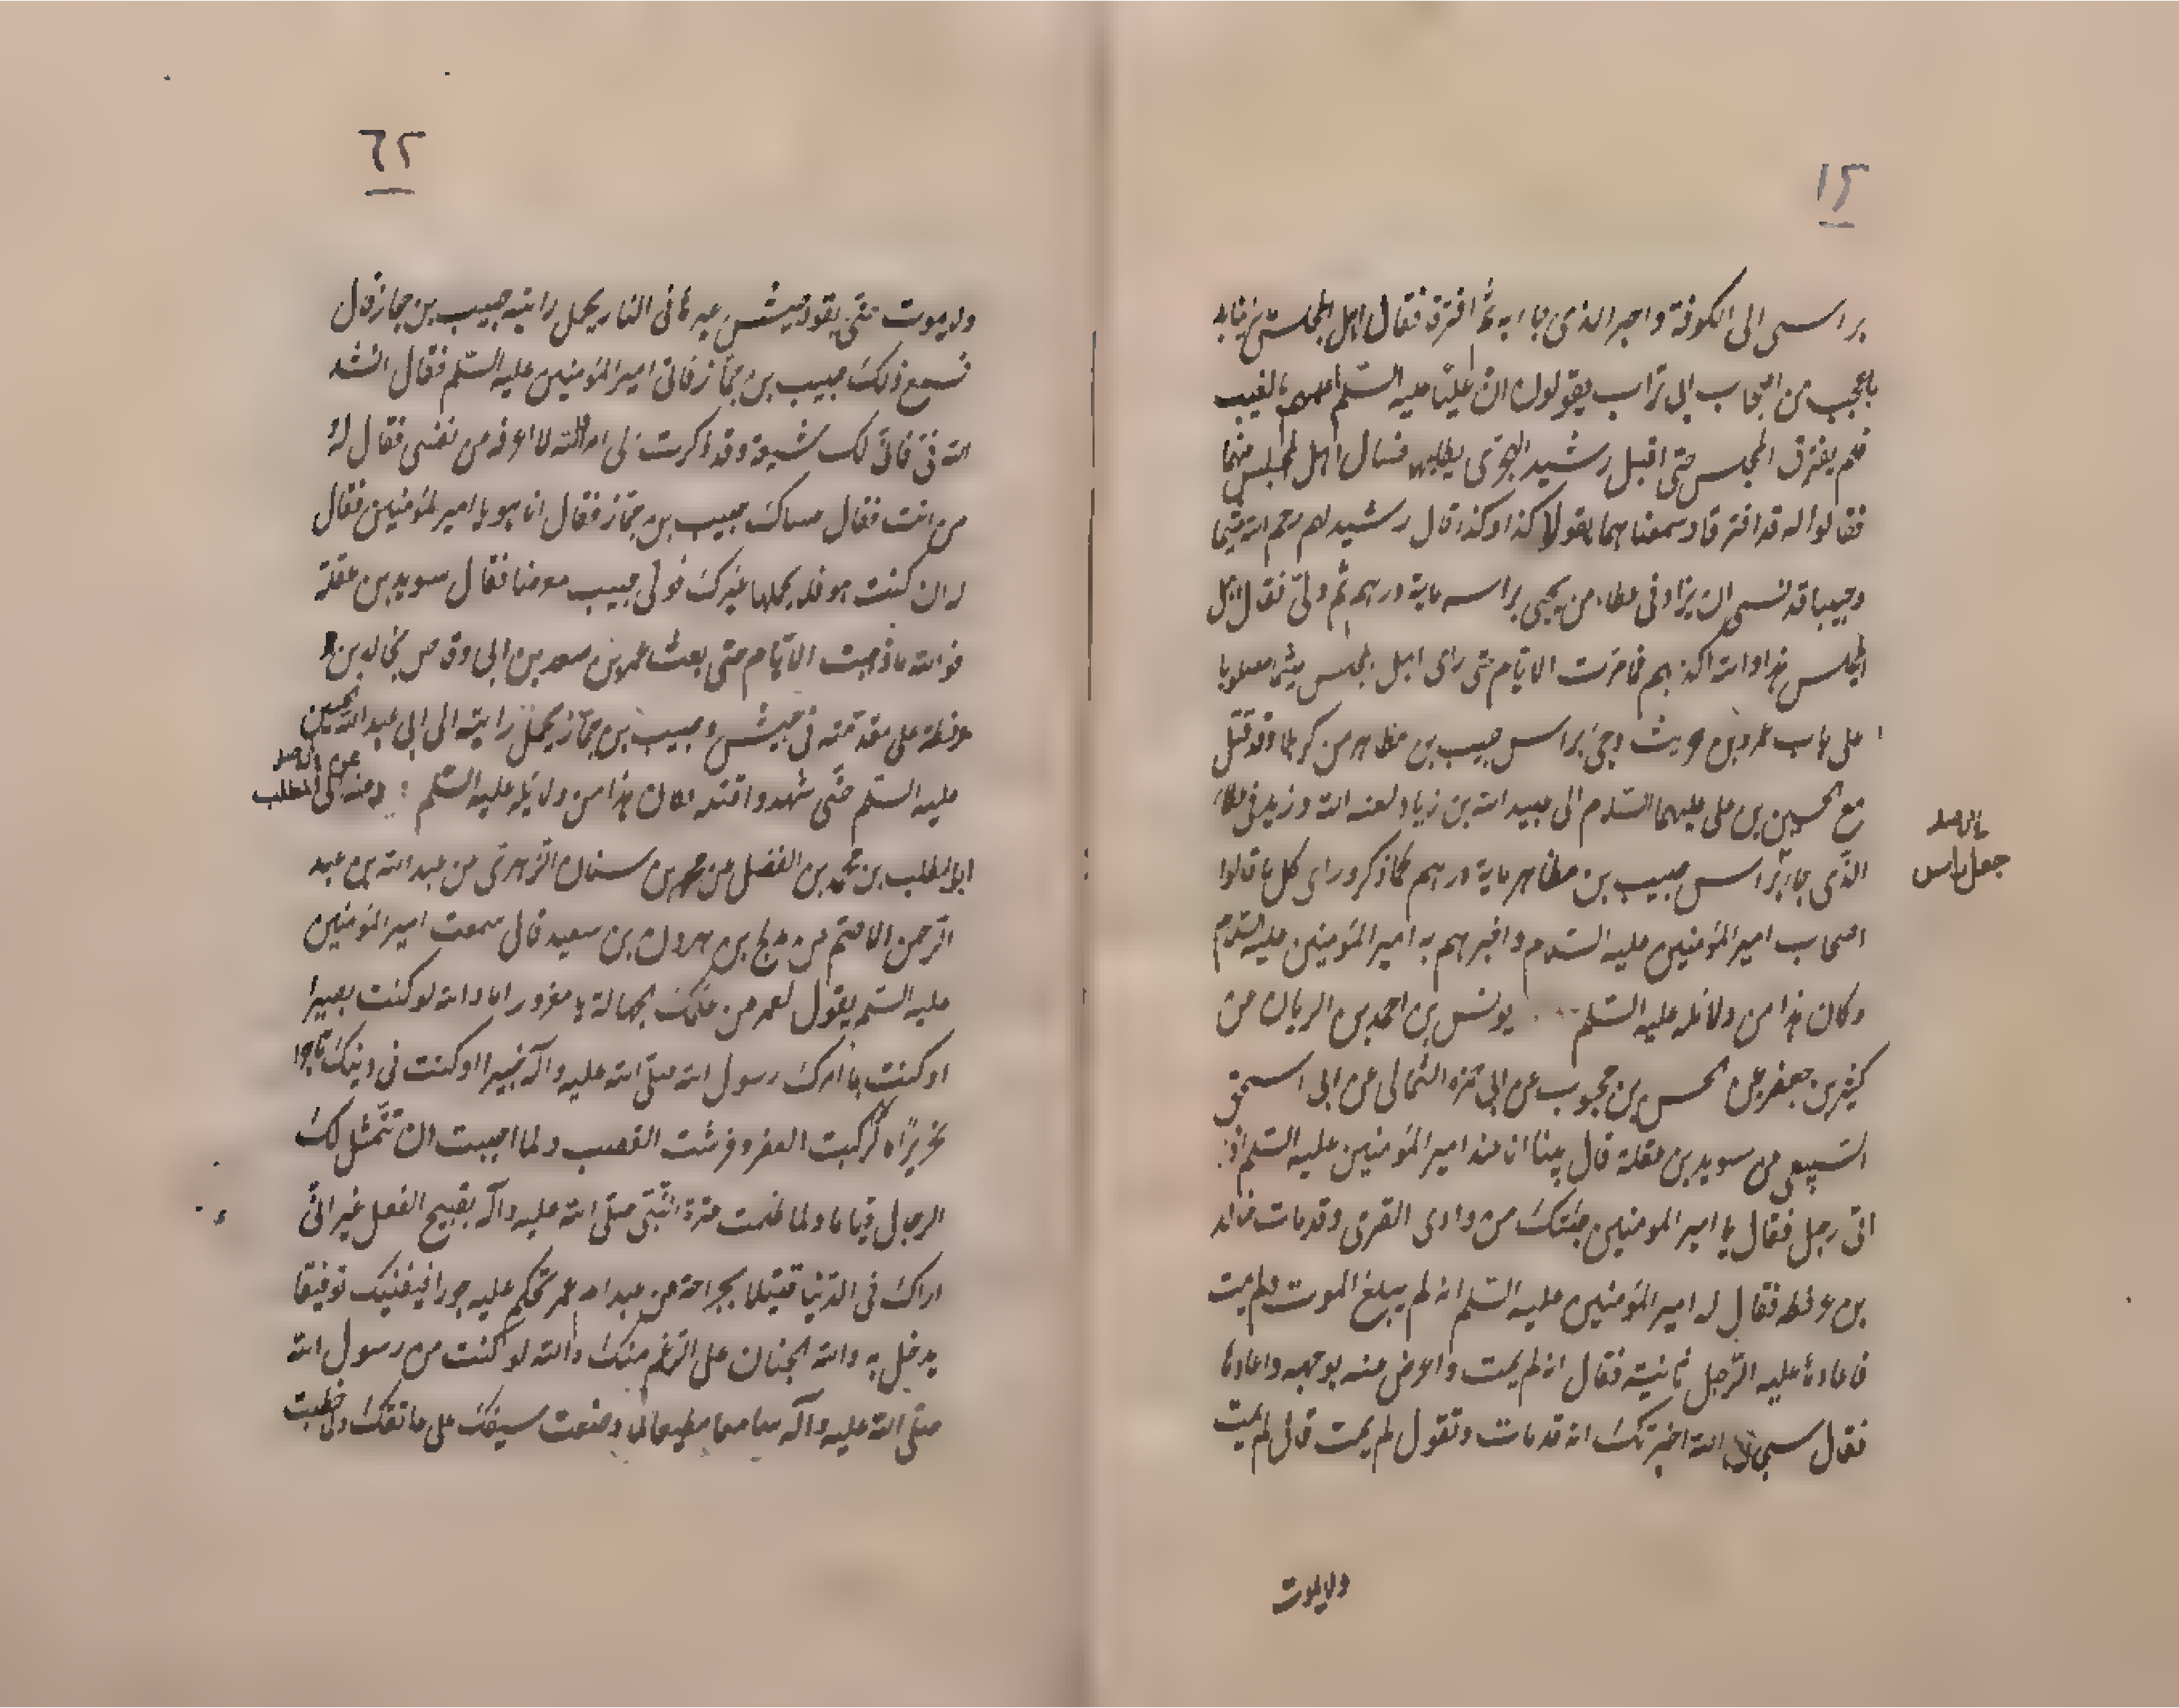 ١٢
براسى الى الكوفة واجير الذى جاء به ثم افترقا فقال اهل المجلس
من اصحاب ابى تراب يقولون ان عليّا عليه السّلم بالغيب
فلم يفترق المجلس حتى اقبل رشيد الهجرى يطلبهما فسال اهل المجلس عنهما
فقالوا له قد افترقا وسمعناهما يقولا كذا وكذا قال رشيد لهم رحم الله ميثما
وحبيبا قد نسى ان يزاد فى عطاء من يجيى براسه ماية درهم ثم ولّى فقال اهل
المجلس هذا والله اكذبهم فما مرّت الايّام حتى راى اهل المجلس ميثم مصلوبا
على باب عمرو بن حريث وجئ براس حبيب بن مظاهر من كربلا وقد قتل
مع الحسين بن على عليهما السّلام الى عبيد الله بن زياد لعنه الله وزيد فى عطاء
الّذى جاء براس حبيب بن مظاهر ماية درهم كما ذكر وراى كل ما قالوا
اصحاب امير المؤمنين عليه السّلام واخبرهم به امير المؤمنين عليه السّلام
وكان هذا من دلائله عليه السّلم يونس بن احمد بن الريان عن
كثير بن جعفر عن الحسن بن محبوب عن ابى حمزه الثمالى عن ابى اسحق
السّبيعى عن سويد بن عقلة قال بينا انا عند امير المؤمنين عليه السّلم اذ
اتى رجل فقال يا امير المومنين جئتك من وادى القرى وقد مات خالد
بن عرفطه فقال له امير المؤمنين عليه السّلم انه لم يبلغ الموت ولم يمت
فاعادها عليه الرّجل ثانية فقال انه لم يمت واعرض عنه بوجهه واعادها
فقال سبحان الله اخبرتك انه قد مات وتقول لم يمت قال لم يمت
ولا يموت
جعل براس
٦٢
ولا يموت حتّى يقود جيش عمى فى النار يحمل رايته حبيب بن جماز قال
فسمع ذلك حبيب بن جمّاز فاتى امير المؤمنين عليه السّلم فقال انشد
الله فىّ فانّى لك شيعة وقد ذكرت لى امرا لا اعرفه من نفسى فقال له
من انت فقال حبيب بن جمّاز فقال انا هو يا امير المؤمنين فقال
له ان كنت هو فلا يحملها غيرك فولى حبيب معرضا فقال سويد بن عقلة
فوالله ما ذهبت الايّام حتى بعث عمر بن سعد بن ابى وقاص بخالد بن
عرفطة على مقدّمته فى جيش وحبيب بن جمّاز يحمل رايته الى ابى عبد الله الحسين
عليه السّلم حتّى شهدوا قتله فكان هذا من دلائله عليه السّلم وعنه عن ابى المطلب
ابى المطلب بن محمد بن الفضل عن محمد بن سنان الزّهرى عن عبد الله بن عبد
الرّحمن الاصم عن مدلج بن هرون بن سعيد قال سمعت امير المؤمنين
عليه السّلم يقول لعمر من علّمك الجهالة يا مغرور اما والله لو كنت بصيرا
او كنت بما امرك رسول الله صلّى الله عليه وآله خبيرا او كنت فى دينك تاجرا
نحريرًا لركبت العقر وفرشت القصب ولما احببت ان تتمثّل لك
الرجال قياما ولما ظلمت عترة النّبىّ صلّى الله عليه وآله بقبيح الفعل غير انّى
اراك فى الدّنيا قتيلا بجراحة من عبد ام عمر تحكم عليه جورا فيقتلك توفيقا
يدخل به والله الجنان على الرّغم منك والله لو كنت من رسول الله
صلّى الله عليه وآله سامعا مطيعا لما وضعت سيفك على عاتقك ولما خطبت